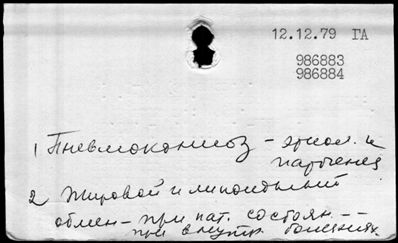 12.12.79 ГА
986883
986884
1 Пневмокониоз – этиол. и
патогенез
2 Жировой и липоидный
обмен – при пат. состоян. --
при внутр. болезнях